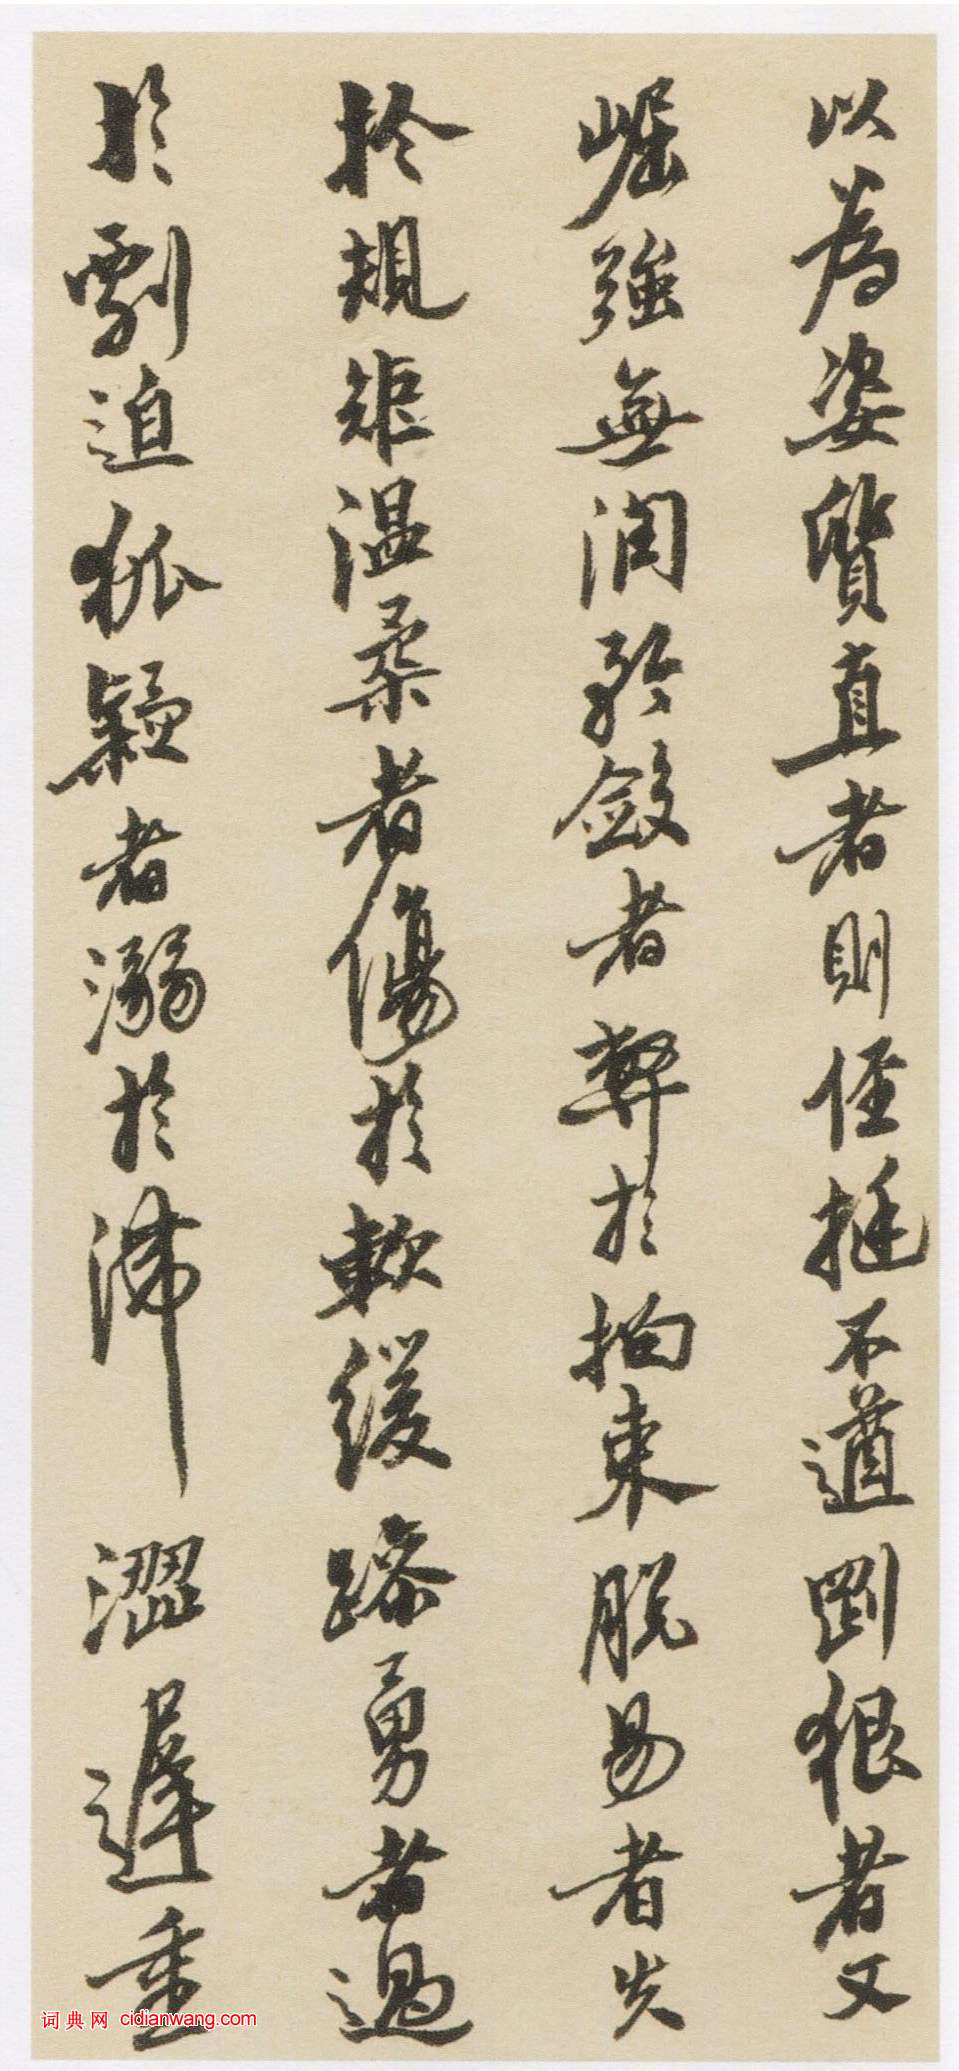 以為姿質直者則侄挺不遒剛狠者又
崛強無潤矜斂者弊於拘束脫易者失
於規矩溫柔者傷於軟緩躁勇者過
於剽迫狐疑者溺於滯澀遲重
词典网 cidianwang.com